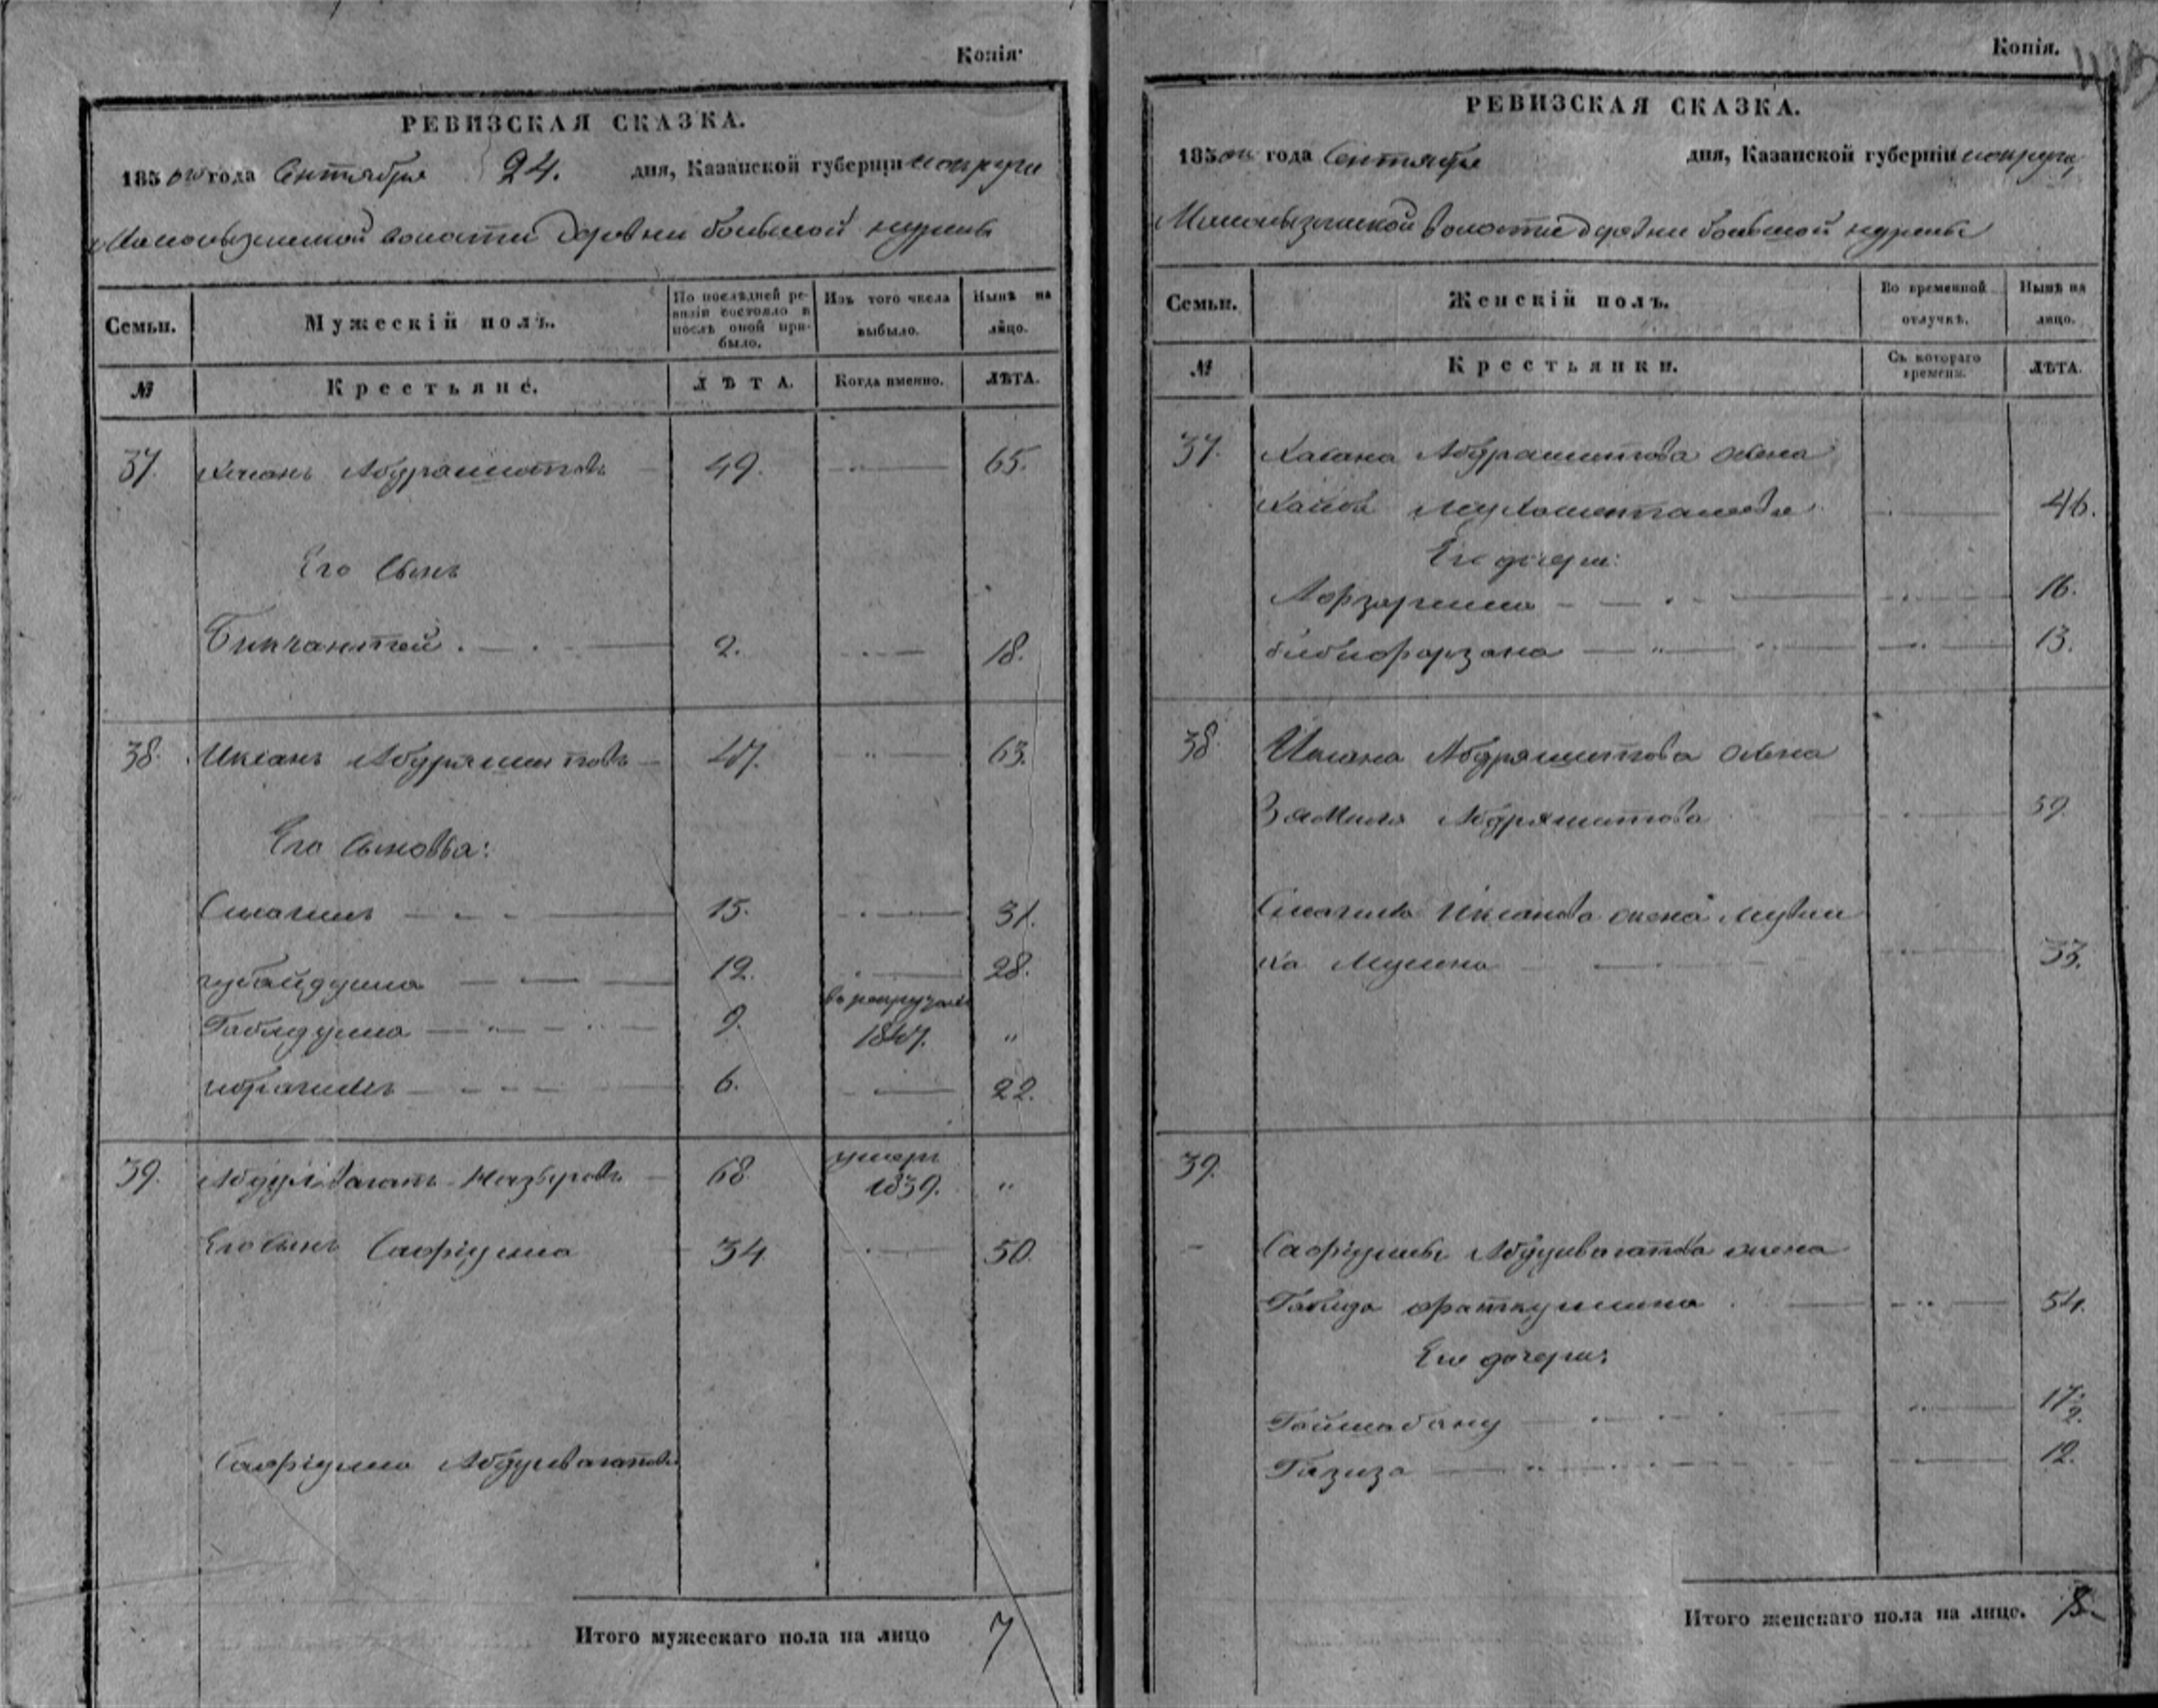 Копія.
РЕВИЗСКАЯ СКАЗКА.
1850го года Сентября 24. дня, Казанской губерніи и округи
волости деревни большой
Семьи. Мужескій полъ. По послѣдней ревизіи состояло и послѣ оной прибыло. Изъ того числа выбыло. Нынѣ на лицо.
№ Крестьяне. ЛѢТА. Когда именно. ЛѢТА.
37. Хасанъ Абдрашитовъ 49. 65.
Его сынъ
Бикчантей 2. 18.
38. Иксанъ Абдряшитовъ 47. 63.
Его сыновья:
Смагилъ 15. 31.
губайдулла 12. 28.
въ рекрутахъ
Габидулла 9. 1847. "
ибрагимъ 6. 22.
умеръ
39. Абдулвагапъ 68 1839. "
Его сынъ Сафіулла 34 50.
Сафіулла Абдулвагаповъ
Итого мужескаго пола на лицо 7
Копія.
РЕВИЗСКАЯ СКАЗКА.
1850го года Сентября дня, Казанской губерніи и округи,
волости деревни большой
Семьи. Женскій полъ. Во временной отлучкѣ. Нынѣ на лицо.
№ Крестьянки. Съ котораго времени. ЛѢТА.
37. Хасана Абдрашитова жена
46.
Его дочери:
16.
бибифарзана 13.
38. Иксана Абдряшитова жена
Замиля Абдряшитова 59.
Смагила Иксанова жена
33.
39.
Сафіуллы Абдулвагапова жена
Габида 54.
Его дочери:
Гайшабану 17½.
Газиза 12.
Итого женскаго пола на лицо. 8